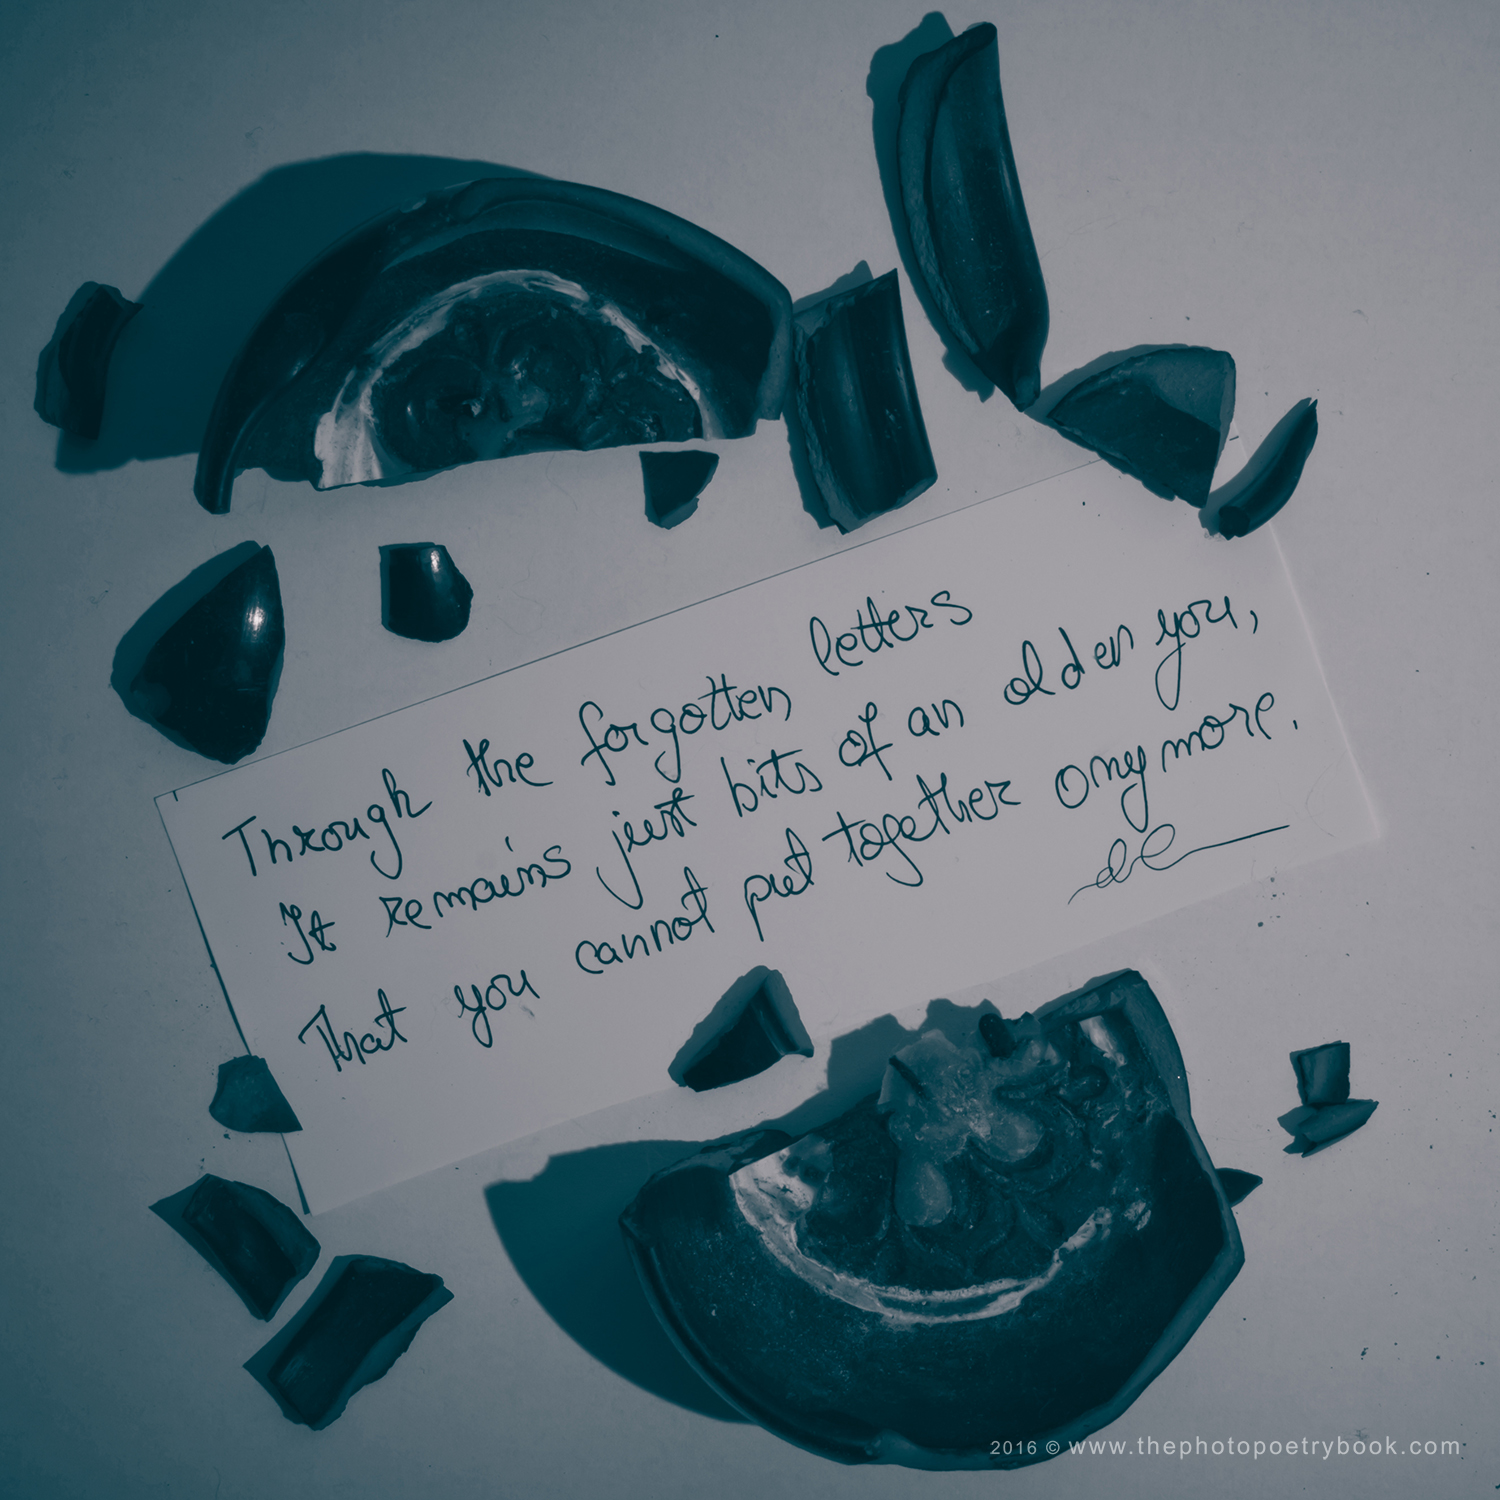 Through the forgotten letters
It remains just bits of an older you,
That you cannot put together anymore.
2016 © www.thephotopoetrybook.com